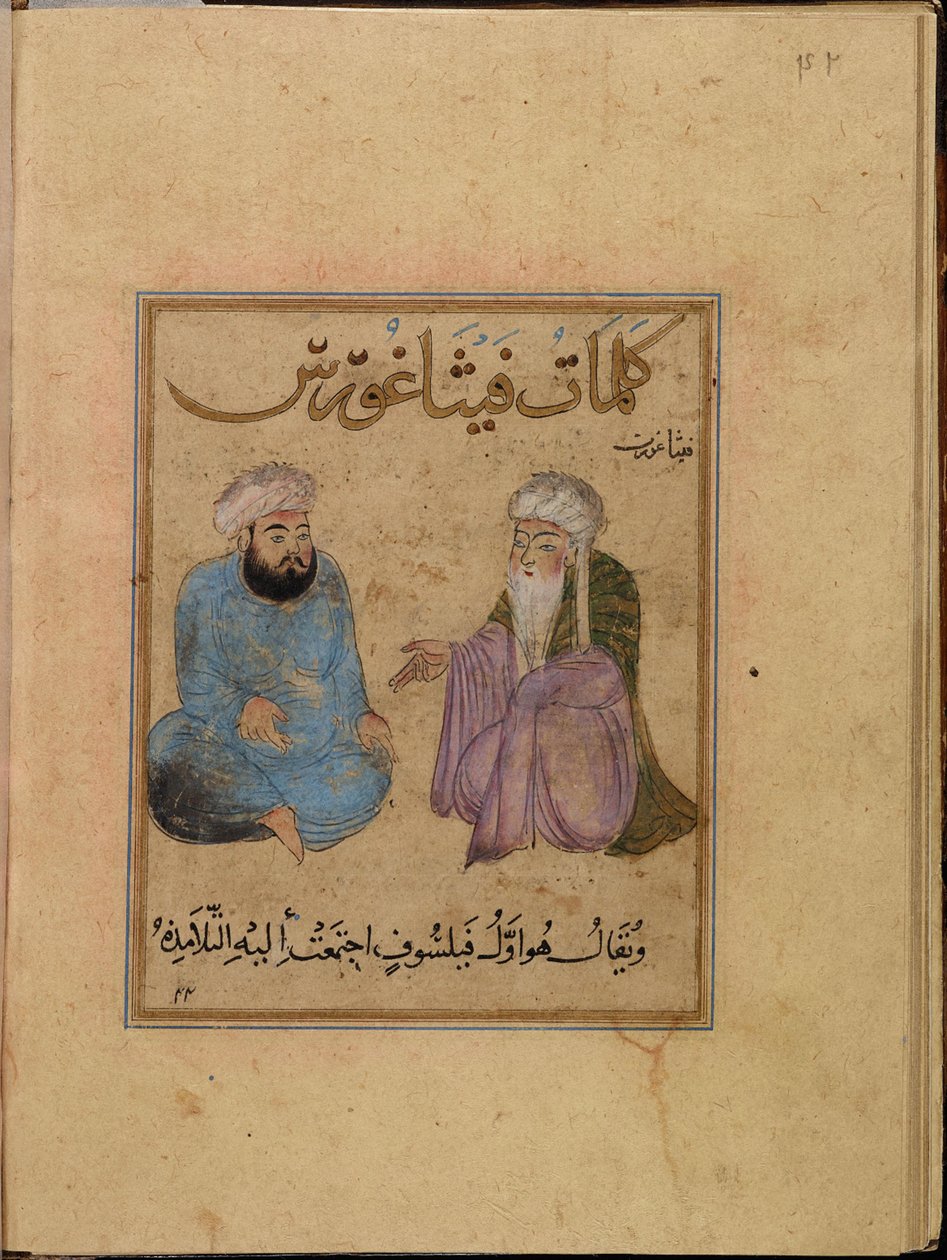 كَلمَاتُ فيثَاغُورس
فيثاغورت
وُيقَالُ هُو اوَّلُ فَيلسُوفٍ اجتمَعَتْ إليهِ التّلَامذهُ